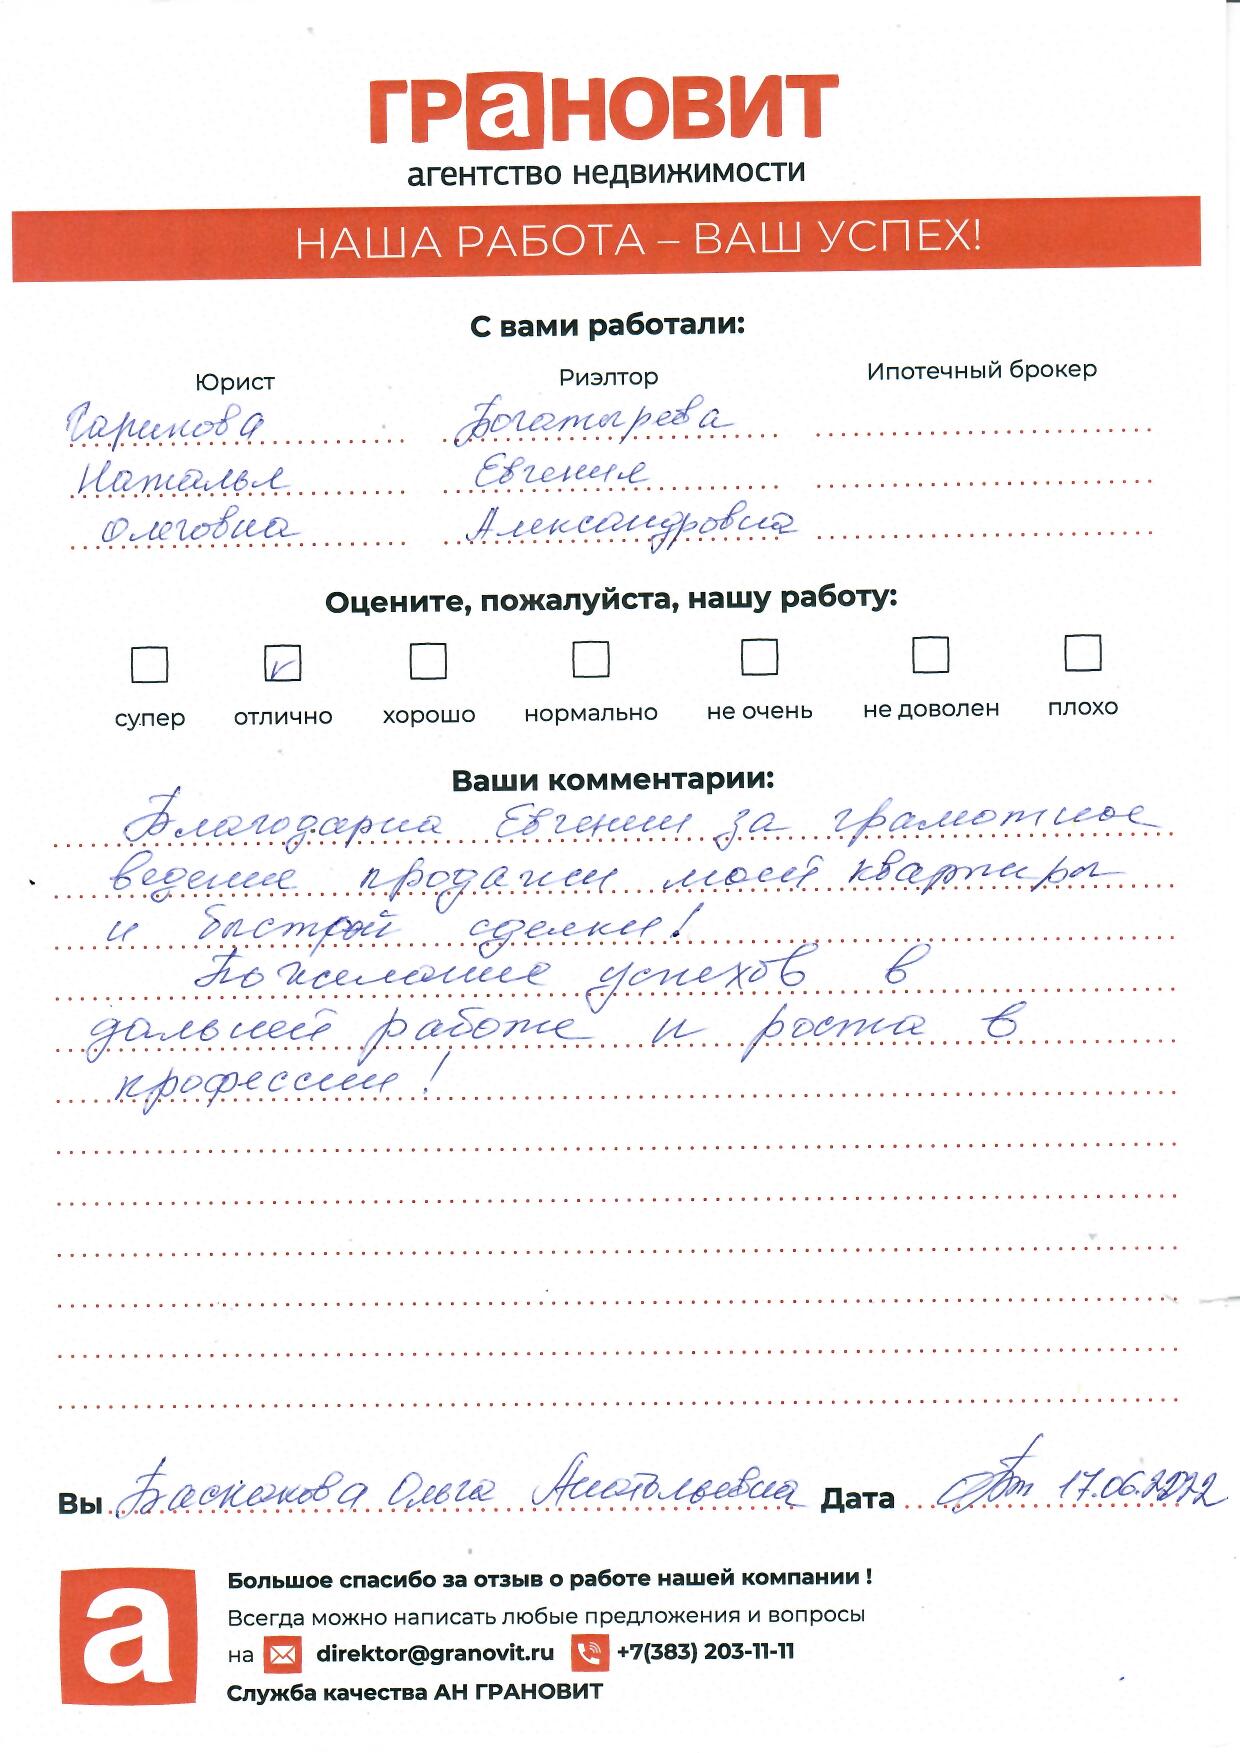 ГРаНОВИТ
агентство недвижимости
НАША РАБОТА – ВАШ УСПЕХ!
С вами работали:
Юрист Риэлтор Ипотечный брокер
Гарикова Богатырева
Наталья Евгения
Олеговна Александровна
Оцените, пожалуйста, нашу работу:
супер отлично хорошо нормально не очень не доволен плохо
Ваши комментарии:
Благодарна Евгении за грамотное
ведение продажи моей квартиры
и быстрой сделки!
Пожелание успехов в
дальней работе и роста в
профессии!
Вы Баскакова Ольга Анатольевна Дата 17.06.2022
а
Большое спасибо за отзыв о работе нашей компании !
Всегда можно написать любые предложения и вопросы
на direktor@granovit.ru +7(383) 203-11-11
Служба качества АН ГРАНОВИТ